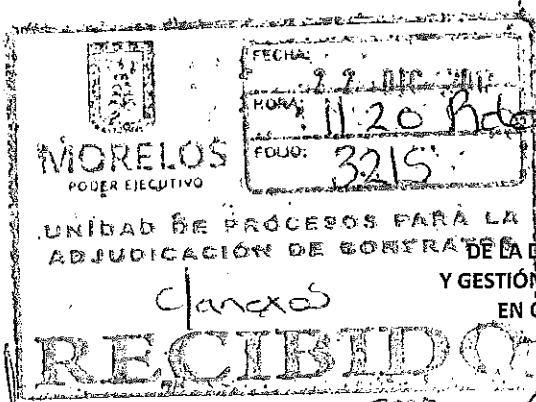 FECHA:
22 DIC
HORA: 11:20
MORELOS
FOLIO: 3215
PODER EJECUTIVO
UNIDAD DE PROCESOS PARA LA
ADJUDICACIÓN DE CONTRATOS
DE LA D
Y GESTIÓN
EN
RECIBIDO